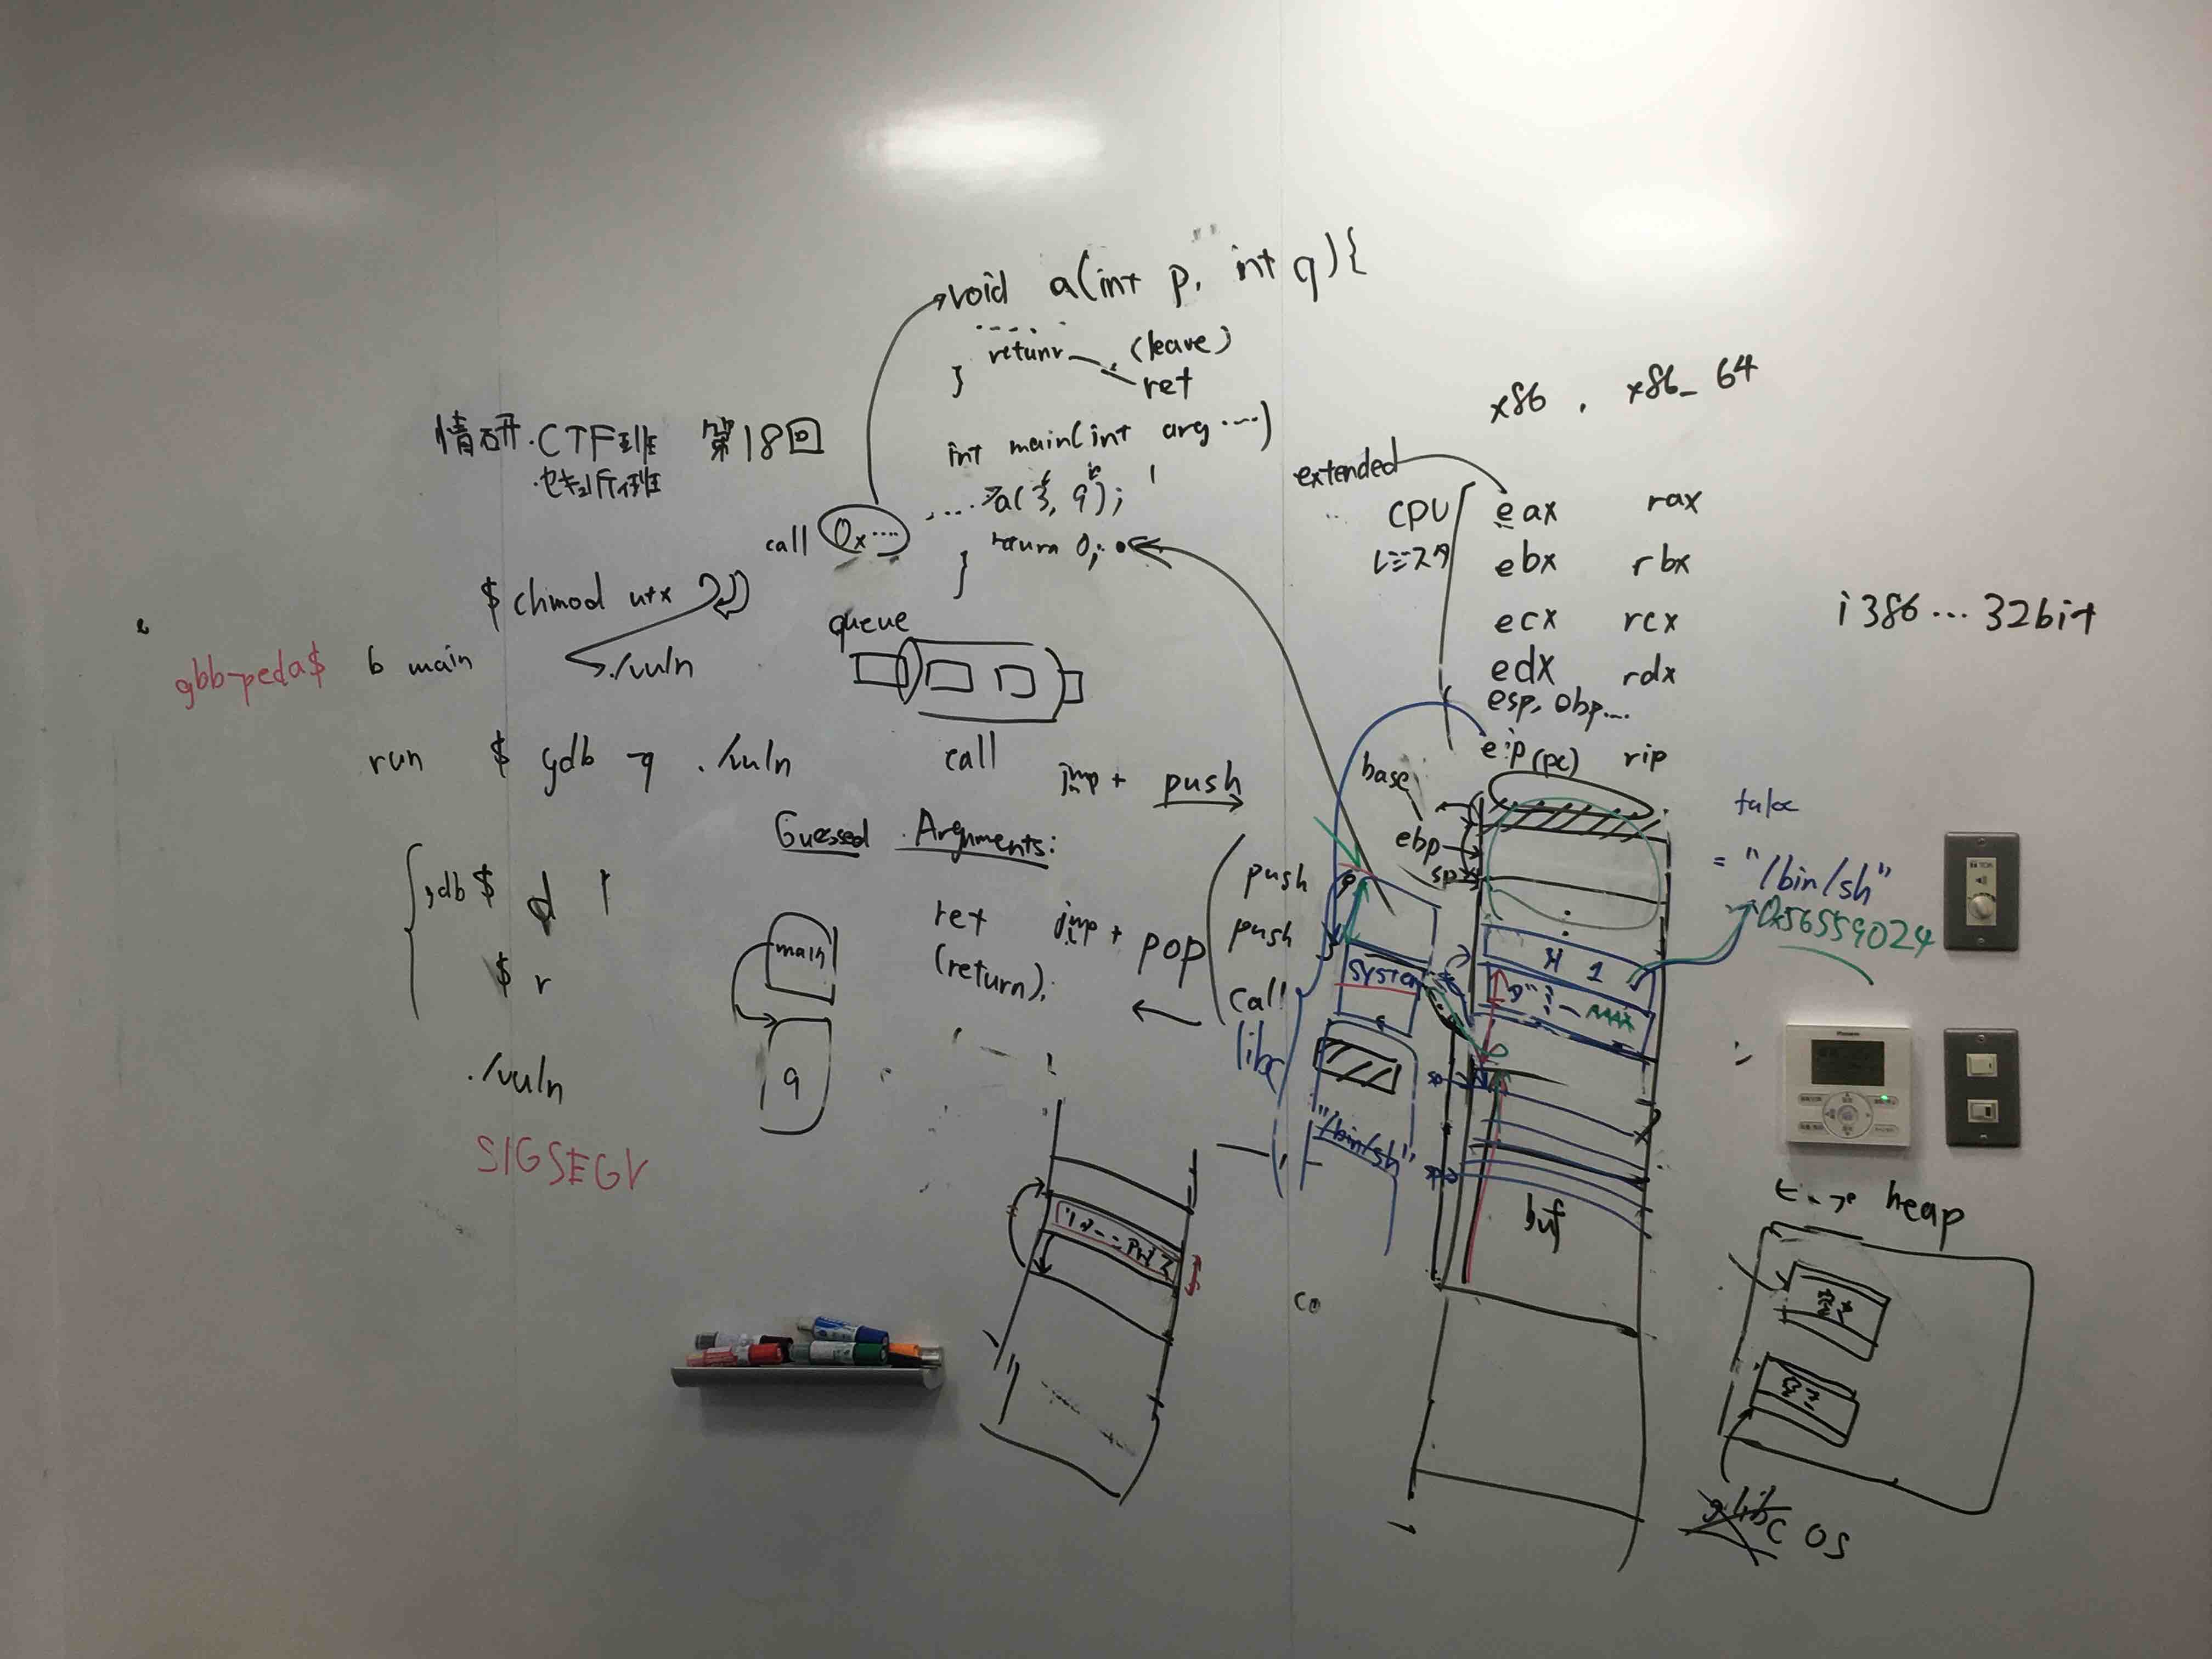 void a(int p, int q){
.....
retunr (leave)
} ret
情研・CTF班 第18回
・セキュリティ班
int main(int arg ....)
.... a(3, 9);
call 0x....
return 0;
}
$ chmod u+x
./vuln
gbb-peda$ b main
run $ gdb -q ./vuln
queue
call jmp + push
Guessed Arguments:
ret jmp + pop
(return)
gdb $ d 1
$ r
./vuln
SIGSEGV
main
a
x86 , x86_64
extended
CPU
レジスタ
eax rax
ebx rbx
ecx rcx
edx rdx
esp, ebp...
eip (pc) rip
i386... 32bit
base
ebp
sp
push
push
call
libc
system
"/bin/sh"
= "/bin/sh"
0x56559024
buf
heap
glibc OS